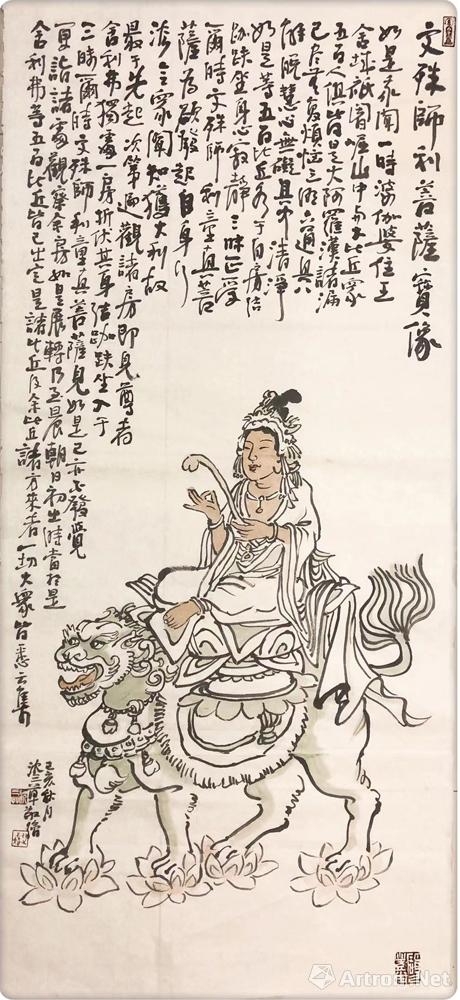 文殊師利菩薩寶像
如是我聞一時婆伽婆住王
舍城祇闍崛山中與大比丘眾
五百人俱皆是大阿羅漢諸漏
已盡無復煩惱三明六通具八
解脫慧心無礙其心清淨
如是等五百比丘各于自房結
跏趺坐身心寂靜三昧正受
爾時文殊師利童真菩
薩為欲發起自身行
法令眾聞知獲大利故
最于先起次第遍觀諸房即見尊者
舍利弗獨處一房折伏其身結跏趺坐入于
三昧爾時文殊師利童真菩薩見如是已亦不發覺
更詣諸處觀察余房如是展轉乃至晨朝日初出時當于是
舍利弗等五百比丘皆已出定是諸比丘及余比丘諸方來者一切大眾皆悉雲集
己亥秋月
Artron.Net